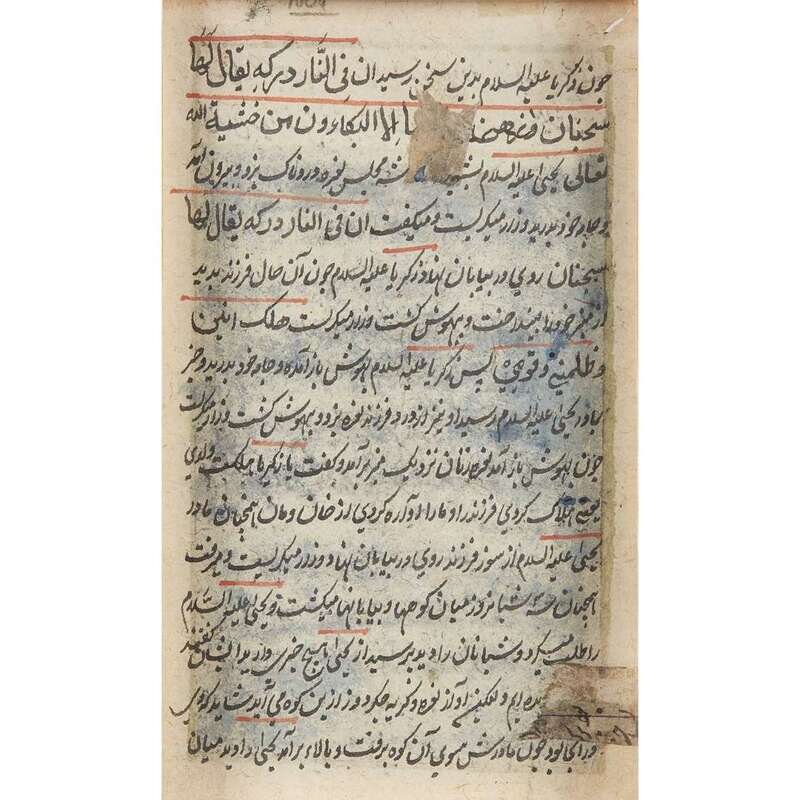 چون زکریا علیه السلام بدین سخن رسید ان فی النار درکه یقال لها
سبحنان الا البکاءون من خشیة الله
تعالی یحیی علیه السلام مجلس نعره دردناک بزد و بیرون آمد
و جامه خود بدرید و زار میکریست و میکفت ان فی النار درکه یقال لها
سبحنان روی در بیابان نهاد زکریا علیه السلام چون آن حال فرزند بدید
از منبر خود را بینداخت و بیهوش کشت و زار میکریست
پس زکریا علیه السلام بهوش باز آمده و جامه خود بدرید و خبر
بمادر یحیی علیه السلام رسید او نیز از درد فرزند نعره بزد و بیهوش کشت و زار میکریست
چون بهوش باز آمد نعره زنان نزدیک منبر برآمد و کفت یا زکریا ولدی
کردی فرزند را و ما را آواره کردی از خان و مان همچنان مادر
یحیی علیه السلام از سوز فرزند روی در بیابان نهاد و زار میکریست و میرفت
همچنان سه شبانروز میان کوهها و بیابانها میکشت و یحیی علیه السلام
را طلب میکرد و شبانان را دید پرسید از یحیی هیچ خبری دارید ایشان کفتند
ندیده ایم ولیکن آواز نعره و کریه جکردوز ازین کوه می آید شاید که وی
بود چون مادرش سوی آن کوه برفت و بالاء برآمد یحیی را دید میان